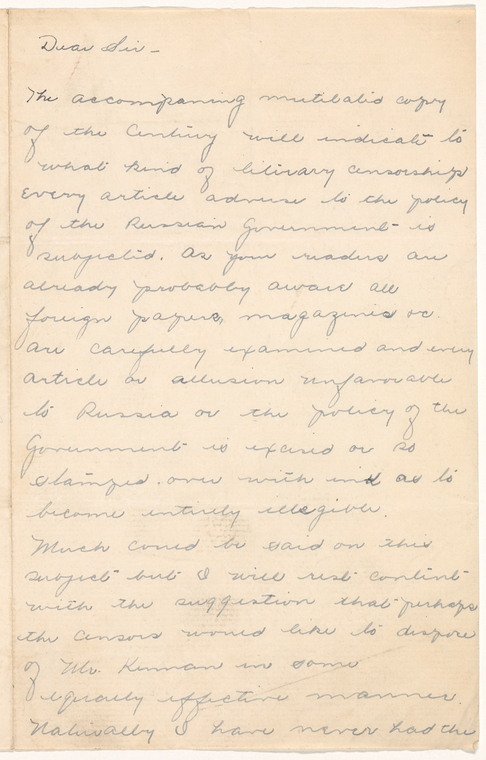 Dear Sir -
The accompaning mutilated copy
of the Century will indicate to
what kind of literary censorship
every article adverse to the policy
of the Russian Government is
subjected. As your readers are
already probably aware all
foreign papers, magazines oc.
are carefully examined and every
article or allusion unfavorable
to Russia or the policy of the
Government is excised or so
stamped over with ink as to
become entirely illegible.
Much could be said on this
subject but I will rest content
with the suggestion that perhaps
the censors would like to dispose
of Mr. Kennan in some
equally effective manner.
Naturally I have never had the